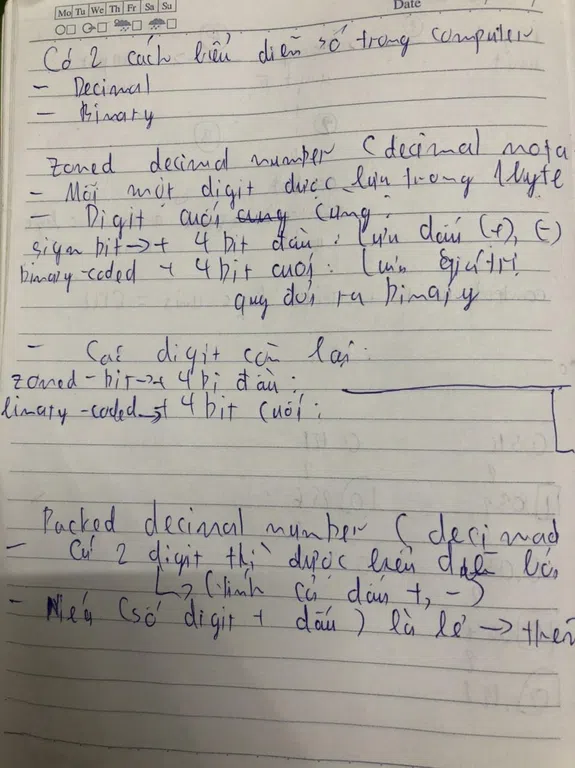 Mo Tu We Th Fr Sa Su
Date
Có 2 cách biểu diễn số trong computer
- Decimal
- Binary
Zoned decimal number (decimal nota
- Mỗi một digit được lưu trong 1byte
- Digit cuối cùng :
sign bit → + 4 bit đầu : lưu dấu (+), (-)
binary-coded + 4 bit cuối : lưu giá trị
quy đổi ra binary
- Các digit còn lại :
zoned-bit → + 4 bi đầu :
binary-coded → + 4 bit cuối :
Packed decimal number ( decimad
- Cứ 2 digit thì được biểu diễn bở
↳ (tính cả dấu +, -)
- Nếu (số digit + dấu ) là lẻ → thê